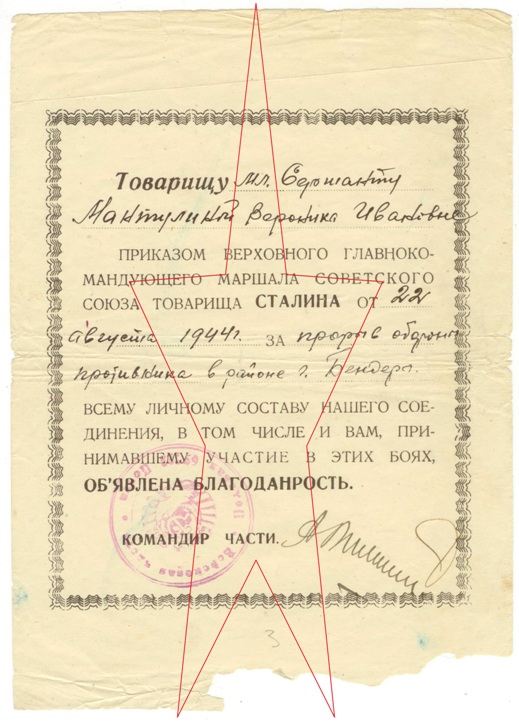 Товарищу мл. Сержанту
Мантулиной Вероника Ивановне
ПРИКАЗОМ ВЕРХОВНОГО ГЛАВНОКО-
МАНДУЮЩЕГО МАРШАЛА СОВЕТСКОГО
СОЮЗА ТОВАРИЩА СТАЛИНА ОТ 22
августа 1944г. ЗА прорыв обороны
противника в районе г. Бендеры.
ВСЕМУ ЛИЧНОМУ СОСТАВУ НАШЕГО СОЕ-
ДИНЕНИЯ, В ТОМ ЧИСЛЕ И ВАМ, ПРИ-
НИМАВШЕМУ УЧАСТИЕ В ЭТИХ БОЯХ,
ОБ'ЯВЛЕНА БЛАГОДАНРОСТЬ.
КОМАНДИР ЧАСТИ.
3